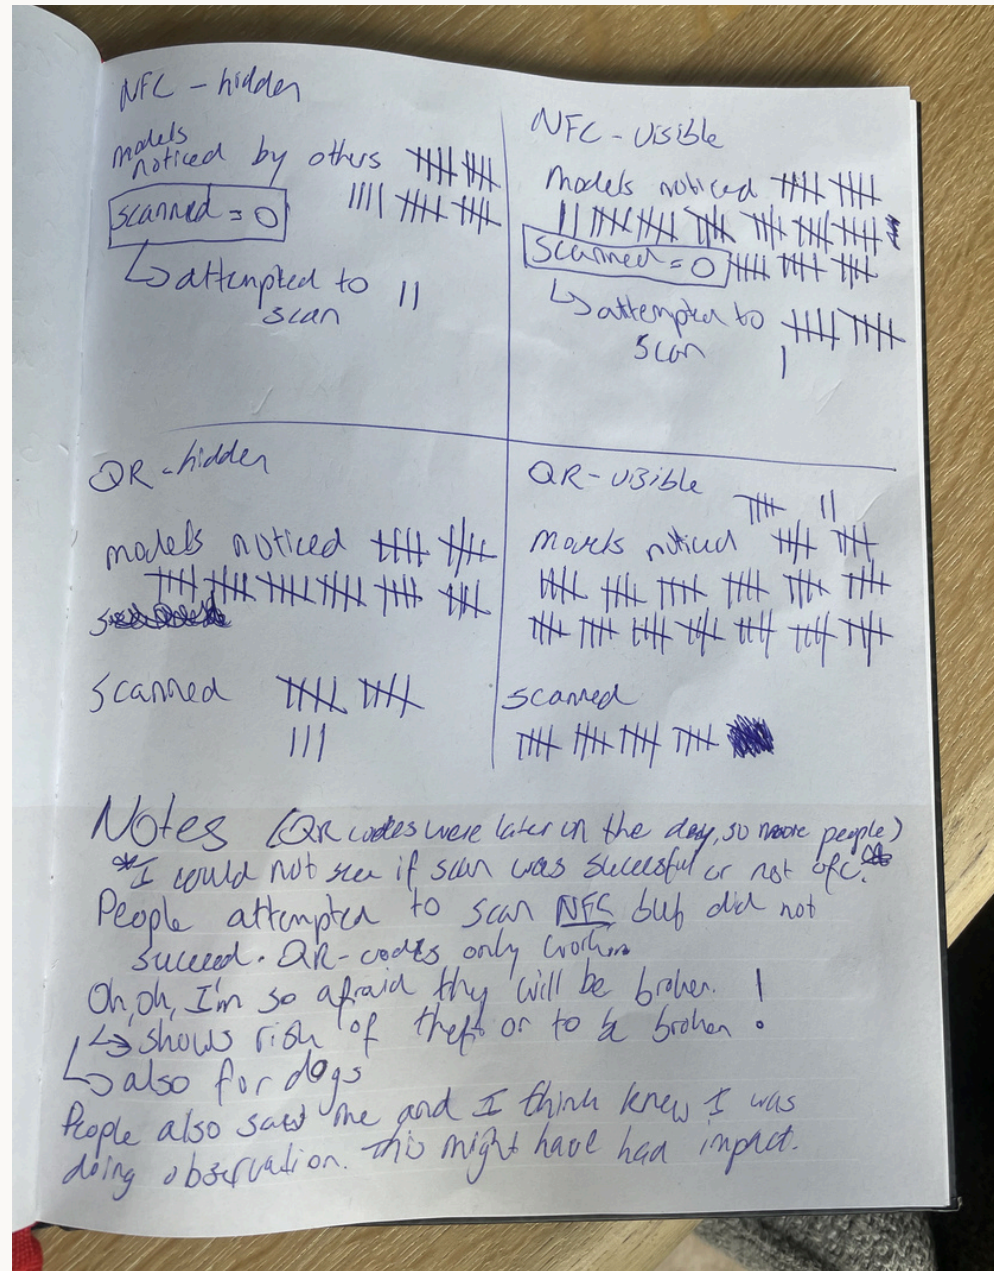 NFC - hidden
models
noticed by others 卌 卌
|||| 卌 卌
scanned = 0
↳ attempted to ||
scan
NFC - visible
models noticed 卌 卌
|| 卌 卌 卌 卌 卌 卌
scanned = 0 卌 卌 卌
↳ attempted to 卌 卌
scan |
QR - hidden
models noticed 卌 卌
卌 卌 卌 卌 卌 卌
scanned 卌 卌
|||
QR - visible 卌 ||
models noticed 卌 卌
卌 卌 卌 卌 卌 卌
卌 卌 卌 卌 卌 卌 卌
scanned
卌 卌 卌 卌
Notes (QR codes were later in the day, so more people)
*I could not see if scan was sucessful or not ofc.
People attempted to scan NFC but did not
succeed. QR-codes only
Oh, oh, I'm so afraid they will be broken. !
↳ shows risk of theft or to be broken
↳ also for dogs
People also saw me and I think knew I was
doing observation. This might have had impact.